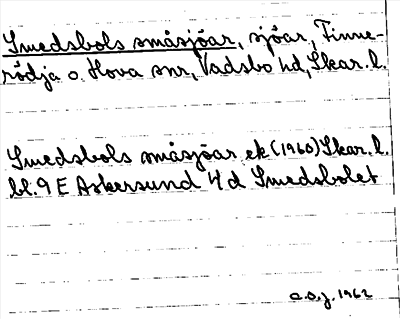 Smedsbols småsjöar, sjöar, Finne-
rödja o. Hova snr, Vadsbo hd, Skar. l.
Smedsbols småsjöar ek (1960) Skar. l.
bl. 9 E Askersund 4 d Smedsbolet
a.s.j. 1962